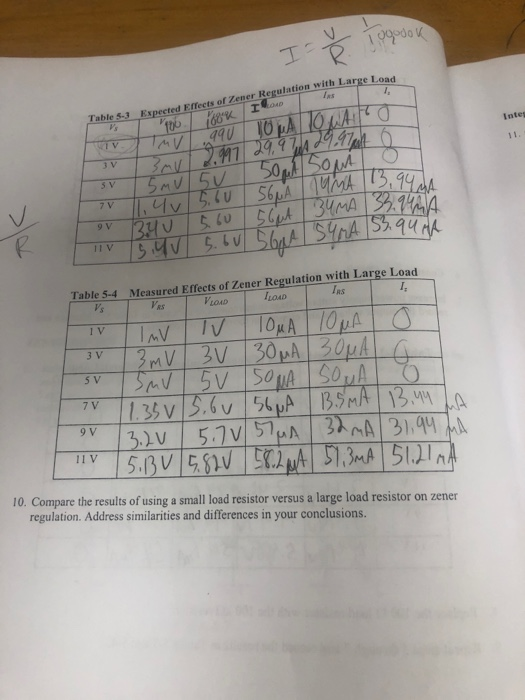 I = V/R 1/100000K
Table 5-3 Expected Effects of Zener Regulation with Large Load
Vs 100 100K I LOAD IRS Iz
1 V 1mV .99V 10μA 10μA 0
3 V 3mV 2.997 29.97μA 29.97μA 0
5 V 5mV 5V 50μA 50μA 0
7 V 1.4V 5.6V 56μA 14mA 13.94mA
9 V 3.4V 5.6V 56μA 34mA 33.94mA
11 V 5.4V 5.6V 56μA 54mA 53.94mA
V/R
Inte
11.
Table 5-4 Measured Effects of Zener Regulation with Large Load
Vs VRS VLOAD ILOAD IRS Iz
1 V 1mV 1V 10μA 10μA 0
3 V 3mV 3V 30μA 30μA 0
5 V 5mV 5V 50μA 50μA 0
7 V 1.35V 5.6V 56μA 13.5mA 13.44mA
9 V 3.2V 5.7V 57μA 32mA 31.94mA
11 V 5.13V 5.82V 58.2μA 51.3mA 51.21mA
10. Compare the results of using a small load resistor versus a large load resistor on zener
regulation. Address similarities and differences in your conclusions.